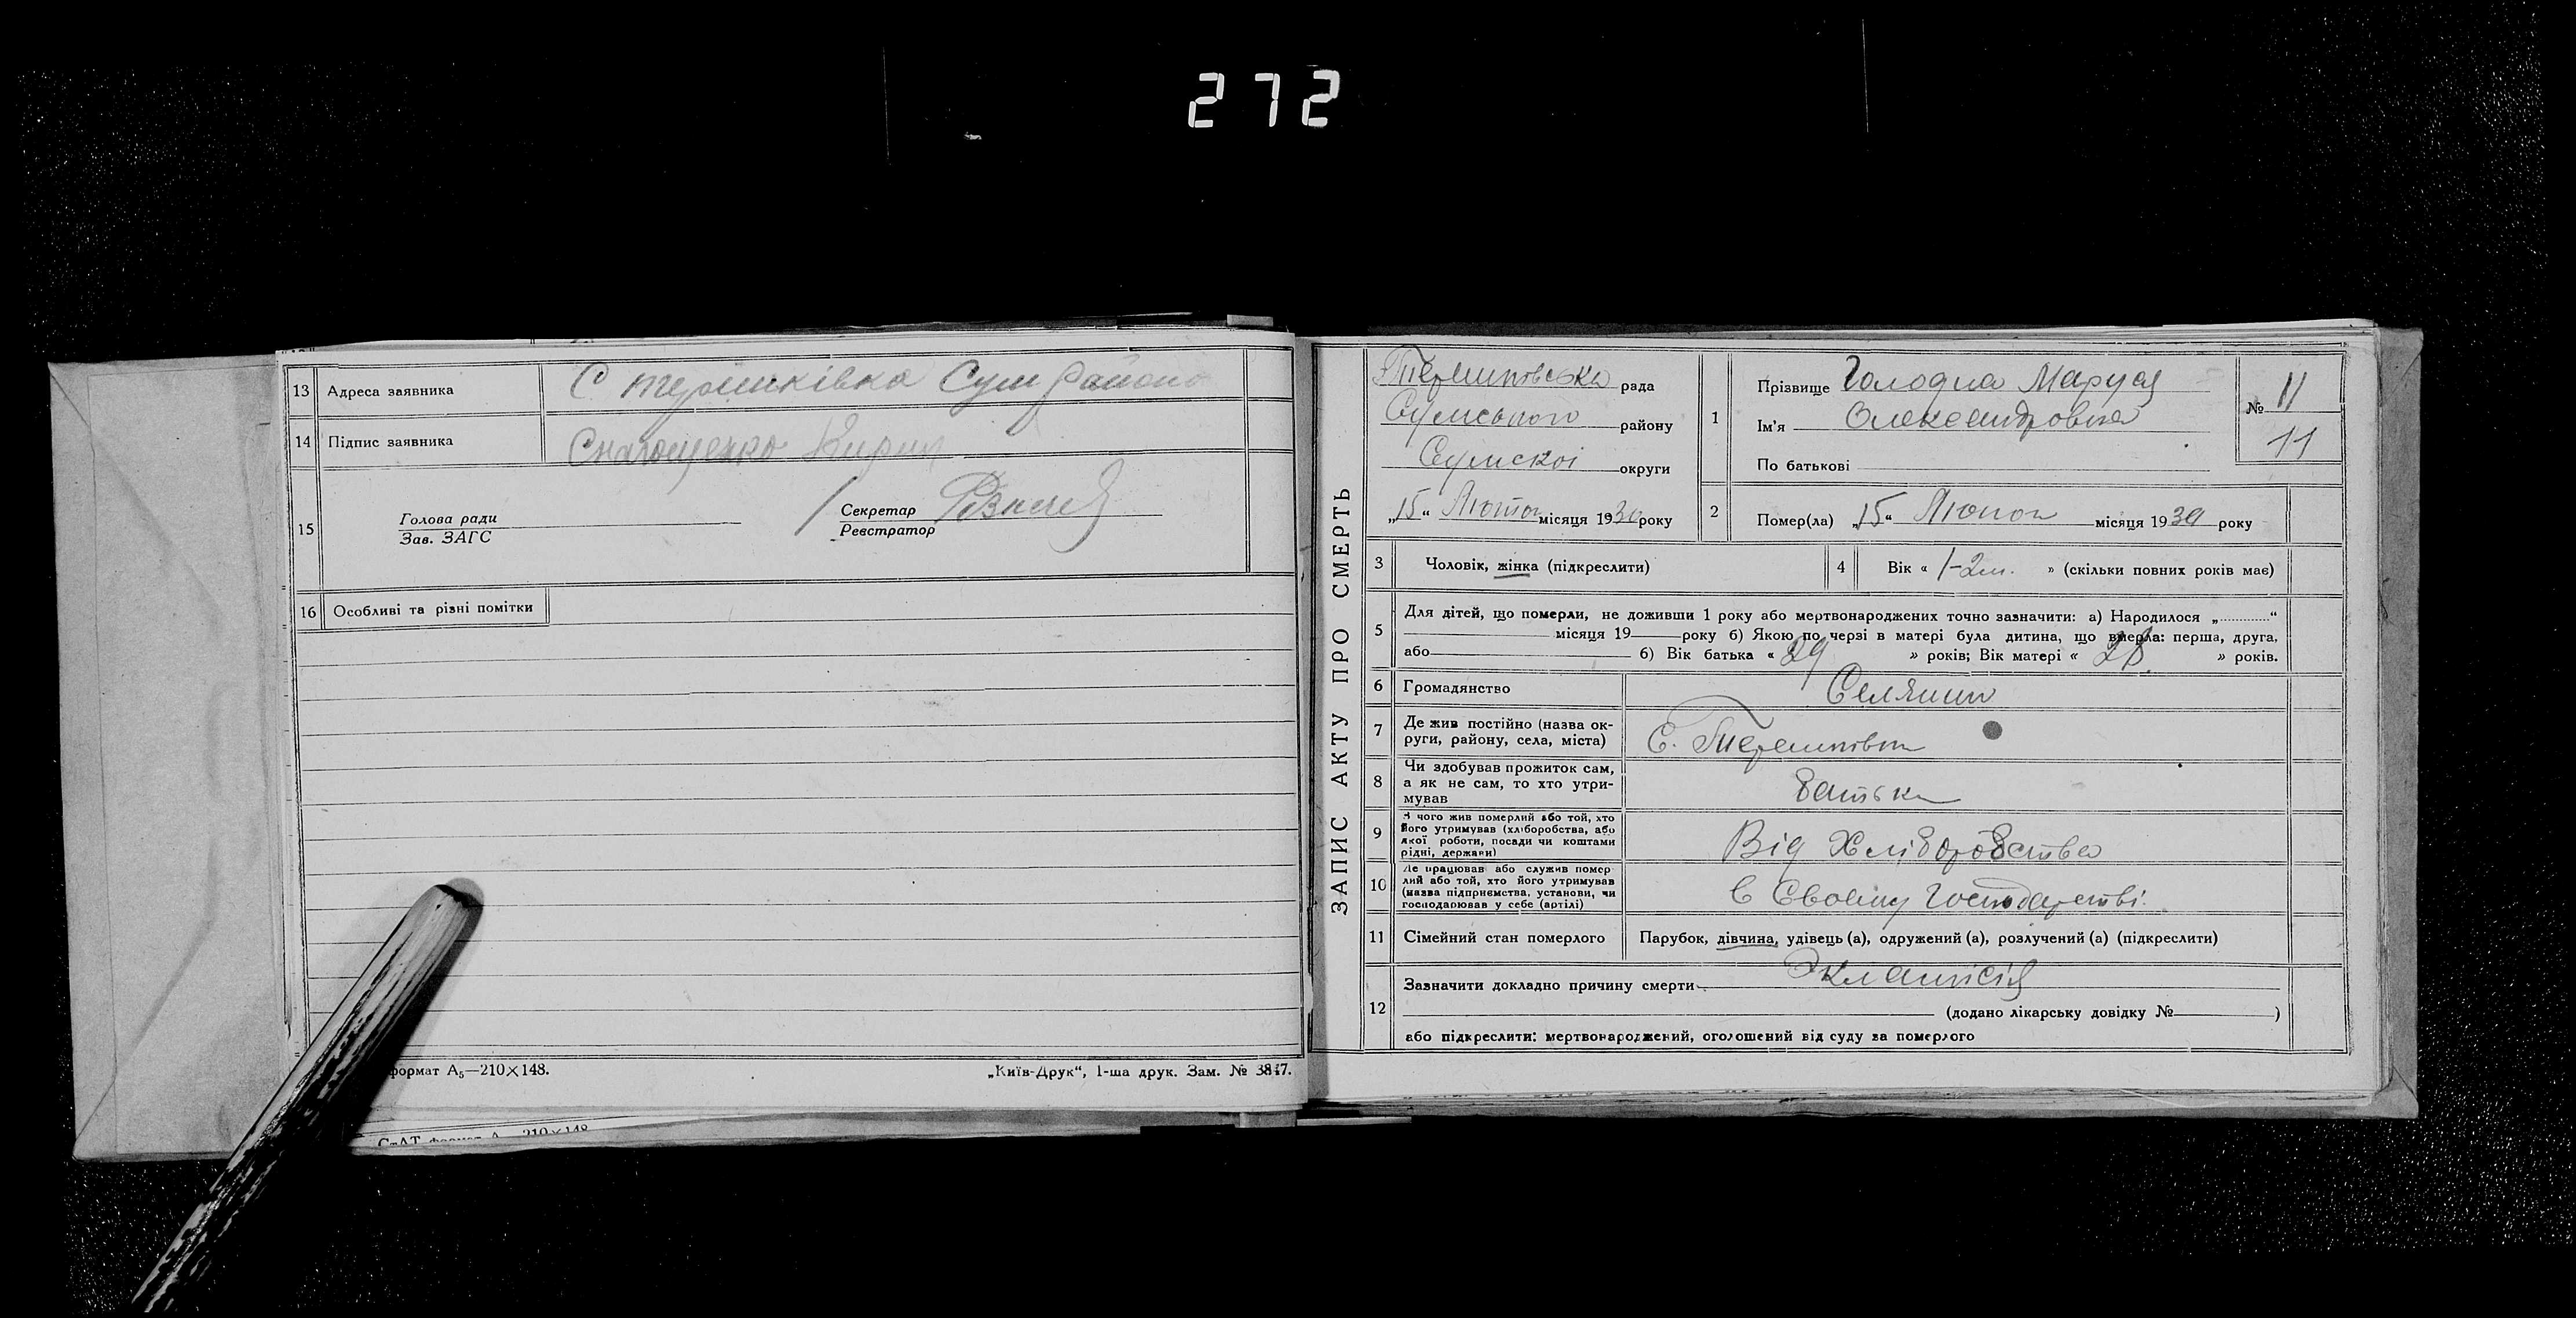 272
13 Адреса заявника С Терешківка Сум району
14 Підпис заявника Снагощенко Кирил
15 Голова ради
Зав. ЗАГС
Секретар
Реєстратор
16 Особливі та різні помітки
формат А5—210×148.
„Київ-Друк“, 1-ша друк. Зам. № 3847.
СтАТ формат А 210×148
ЗАПИС АКТУ ПРО СМЕРТЬ
Терешківська рада
Сумського району
Сумскої округи
„15“ Лютого місяця 1930 року
1 Прізвище Голодна Маруся
Ім'я Олександровна
По батькові
№ 11
11
2 Помер(ла) „15“ Лютого місяця 1930 року
3 Чоловік, жінка (підкреслити)
4 Вік « 1-2м. » (скільки повних років має)
5 Для дітей, що померли, не доживши 1 року або мертвонароджених точно зазначити: а) Народилося „...........“
місяця 19 року б) Якою по черзі в матері була дитина, що вмерла: перша, друга,
або б) Вік батька « 29 » років; Вік матері « 28 » років.
6 Громадянство Селянин
7 Де жив постійно (назва ок-
руги, району, села, міста) С. Терешківка
8 Чи здобував прожиток сам,
а як не сам, то хто утри-
мував батько
9 З чого жив померлий або той, хто
його утримував (хліборобства, або
якої роботи, посади чи коштами
рідні, держави) Від Хліборобства
10 Де працював або служив помер
лий або той, хто його утримував
(назва підприємства, установи, чи
господарював у себе (артілі) в Своему Господарстві
11 Сімейний стан померлого Парубок, дівчина, удівець (а), одружений (а), розлучений (а) (підкреслити)
12 Зазначити докладно причину смерти Экламсія
(додано лікарську довідку № )
або підкреслити: мертвонароджений, оголошений від суду за померлого